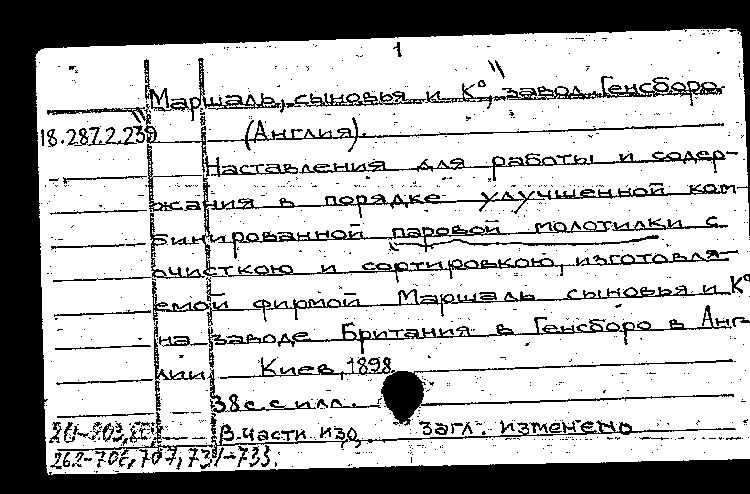 1
"Маршаль, сыновья и К°", завод. Генсборо
18.287.2.239 (Англия).
Наставления для работы и содер-
жания в порядке улучшенной ком-
бинированной паровой молотилки с
очисткою и сортировкою, изготовля-
емой фирмой Маршаль сыновья и К°
на заводе Британия в Генсборо в Анг-
лии. Киев, 1898
38 с. с илл.
В части изд. загл. изменено
262-706, 707, 731-733.